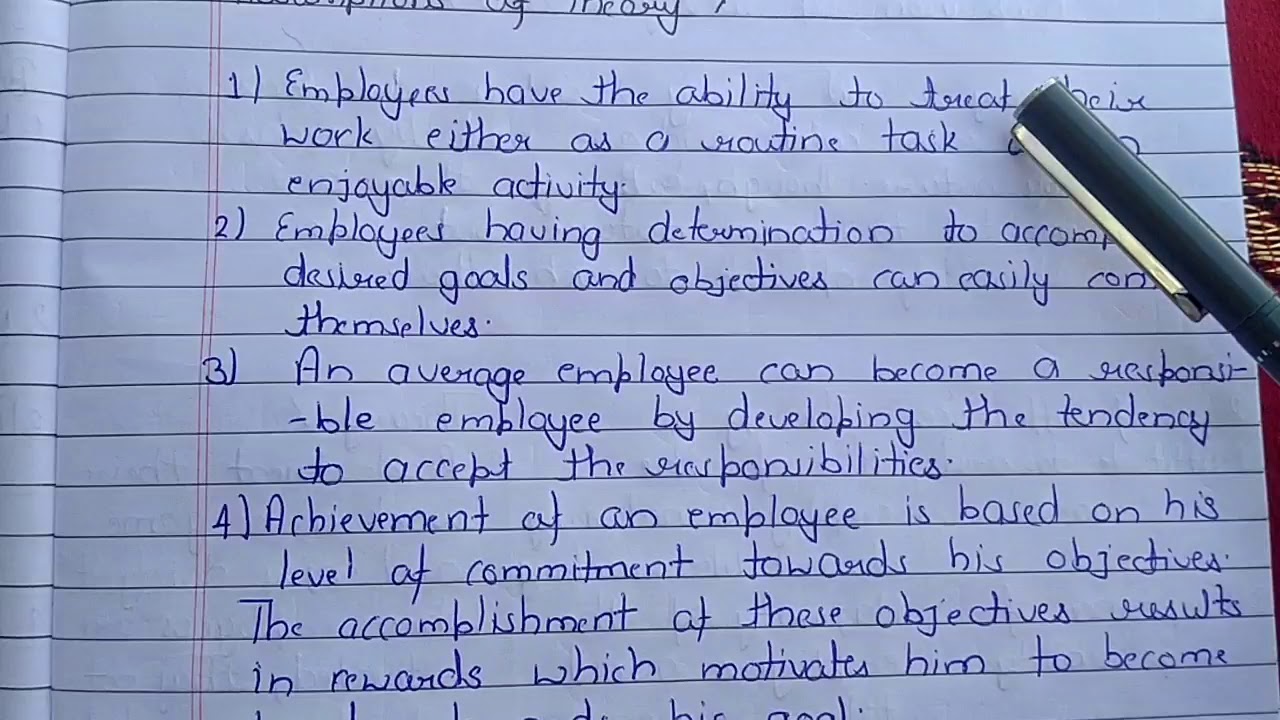 of Theory
1) Employees have the ability to treat their
work either as a routine task
enjoyable activity.
2) Employees having determination to
desired goals and objectives can easily
themselves.
3) An average employee can become a responsi-
-ble employee by developing the tendency
to accept the responsibilities.
4) Achievement of an employee is based on his
level of commitment towards his objectives.
The accomplishment of these objectives results
in rewards which motivates him to become
his goal.